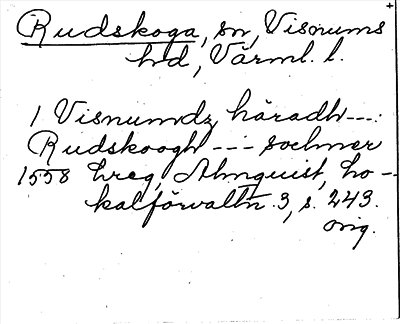 Rudskoga, sn, Visnums
hd, Värml. l.
1 Visnumdz häradh ---:
Rudskoogh --- sochner
1558 hreg, Almquist, Lo-
kalförvaltn. 3, s. 243.
orig.